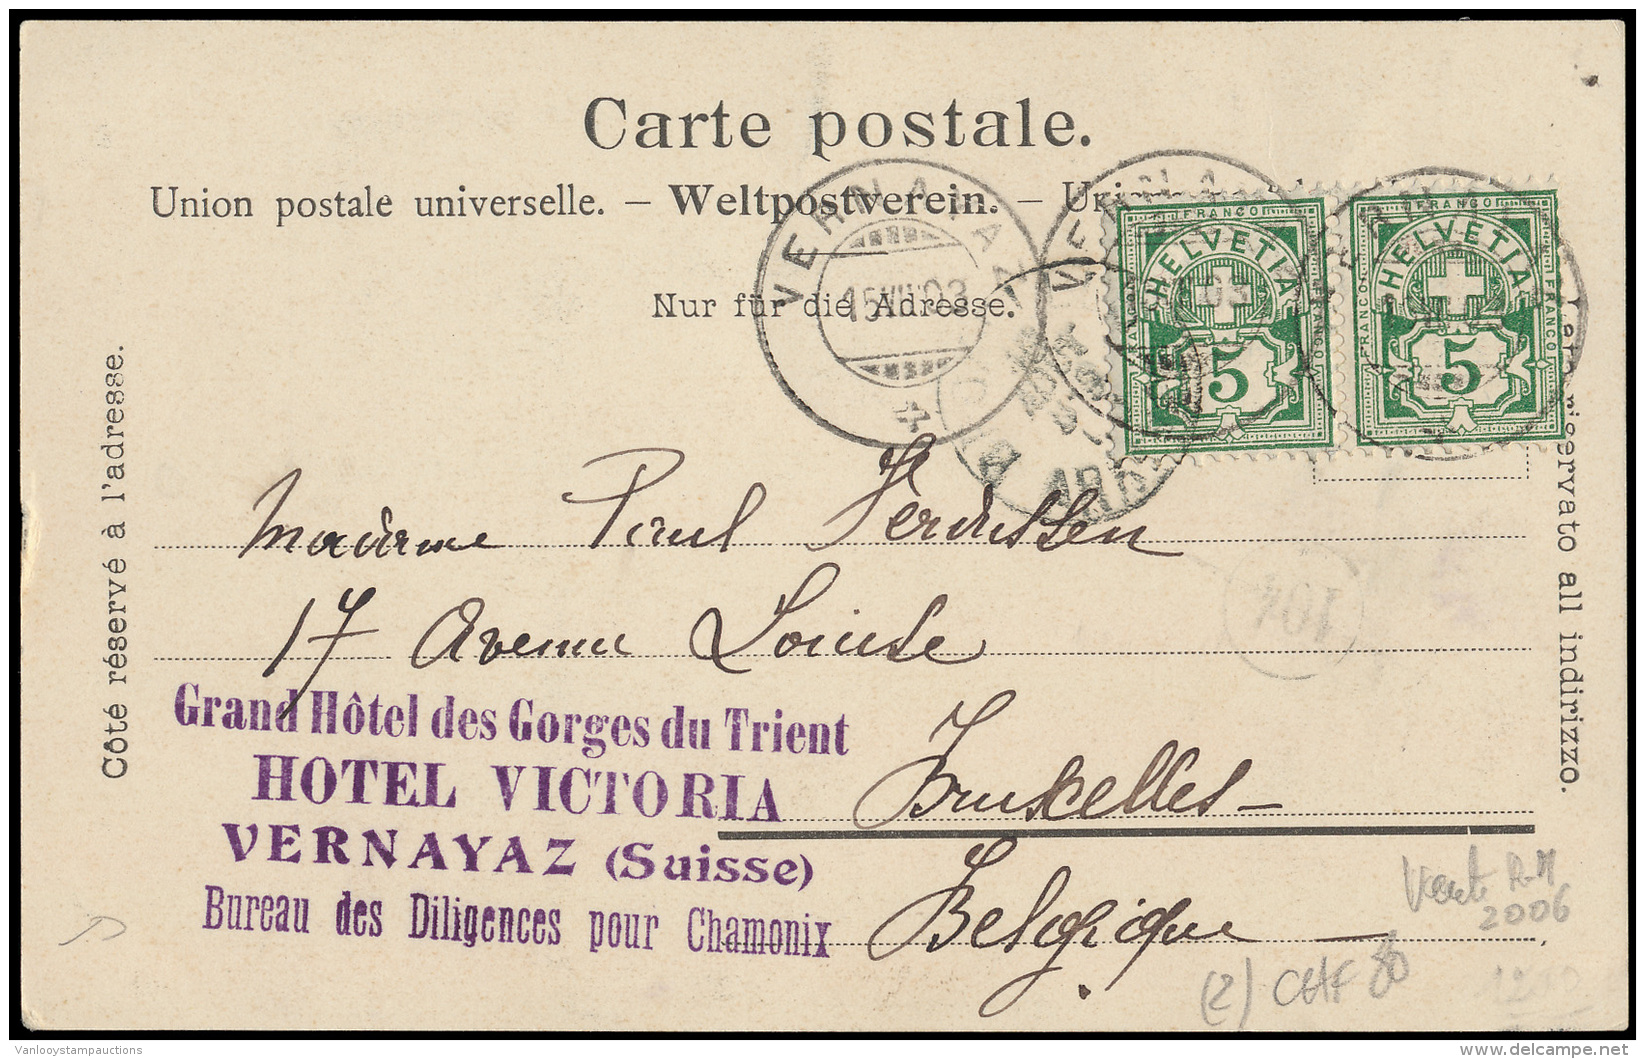 Carte postale.
Union postale universelle. – Weltpostverein. –
Nur für die Adresse.
Côté réservé à l'adresse.
riservato all indirizzo.
VERNAYAZ
15 VII 03
FRANCO
HELVETIA
FRANCO
5
FRANCO
HELVETIA
FRANCO
FRANCO
5
104
Madame Paul Ferdussen
17 Avenue Louise
Bruxelles –
Belgique
Grand Hôtel des Gorges du Trient
HOTEL VICTORIA
VERNAYAZ (Suisse)
Bureau des Diligences pour Chamonix
Vente R-M
2006
(2) CHF 80
Vanlooystampauctions
© delcampe.net